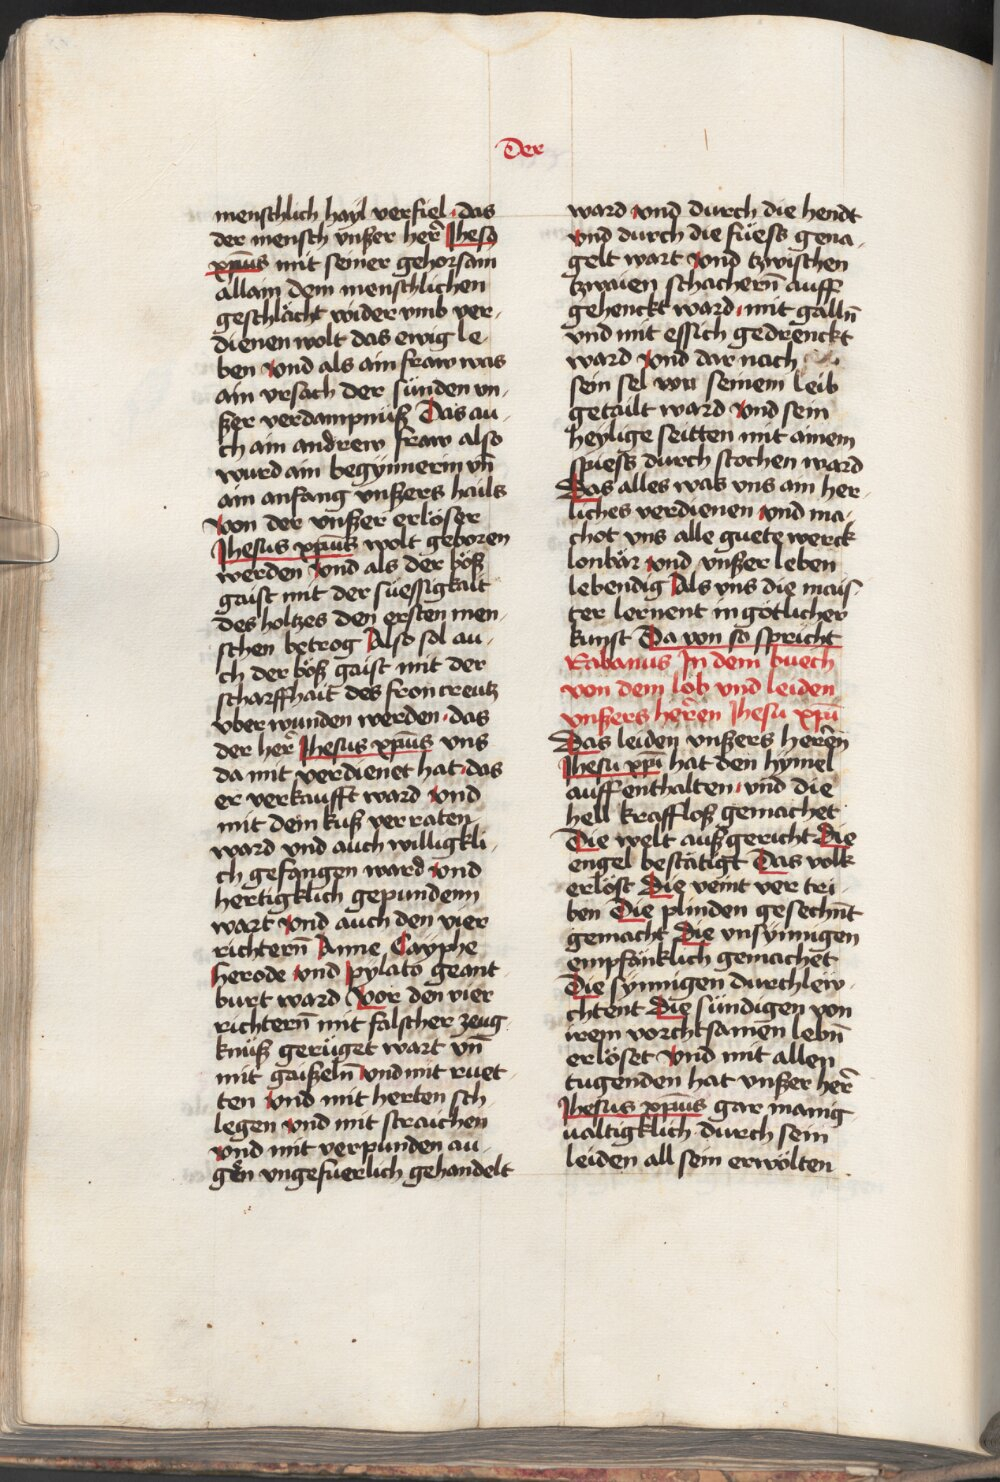 Der
menschlich hayl verfiel · das
der mensch vnßer her̄ Jheso
xp̄us mit seiner gehorsam
allain dem menschlichen
geschlächt wider vmb ver-
dienen wolt das ewig le-
ben vnd als ain fraw was
ain vrsach der sünden vn-
ßer verdampnüß Das au-
ch ain andrew fraw also
wurd ain begynnerin vn̄
ain anfang vnßers hails
von der vnßer erlöser
Jhesus xp̄us wolt geboren
werden vnd als der böß
gaist mit der süessigkait
des holtzes den ersten men-
schen betrog Also sol au-
ch der böß gaist mit der
scharffhait des fron creutz
vber wunden werden · das
der her̄ Jhesus xp̄us vns
da mit verdienet hat · das
er verkaufft ward vnd
mit dem kuß verraten
ward vnd auch willigkli-
ch gefangen ward vnd
hertigklich gepundenn
wart vnd auch den vier
richtern̄ Anne Cayphe
herode vnd pylato geant-
burt ward Vor den vier
richtern̄ mit falscher zeug
knüß gerüget wart vn̄
mit gaißeln̄ vnd mit ruet-
ten vnd mit herten sch-
legen vnd mit straichen
vnd mit verpunden au-
gen vngefuerlich gehandelt
ward vnd durch die hendt
vnd durch die füess gena-
gelt wart vnd tzwischen
tzwaien schachern̄ auff
gehenckt ward · mit galln̄
vnd mit essich gedrenckt
ward vnd dar nach
sein sel von seinem leib
getailt ward vnd sein
heylige seitten mit ainem
spiess durch stochen ward
Das alles was vns ain her-
liches verdienen vnd ma-
chot vns alle guete werck
lonbär vnd vnßer leben
lebendig Als vns die mais-
ter lernent in götlicher
kunst Da von so spricht
Rabanus Jn dem buech
von dem lob vnd leiden
vnßers her̄en Jhesu xp̄ū
Das leiden vnßers her̄en
Jhesu xp̄i hat den hymel
auff enthalten · vnd die
hell krafftloß gemachet
Die welt auß gericht Die
engel bestätigt Das volk
erlöst Die veint ver tri-
ben Die plinden gesechn̄t
gemacht Die vnsynnigen
empfänklich gemachet
Die synnigen durchlew-
chtent Die sündigen von
irem vorchtsamen lebn̄
erlöset vnd mit allen
tugenden hat vnßer her̄
Jhesus xp̄us gar manig
ualtigklich durch sein
leiden all sein erwölten